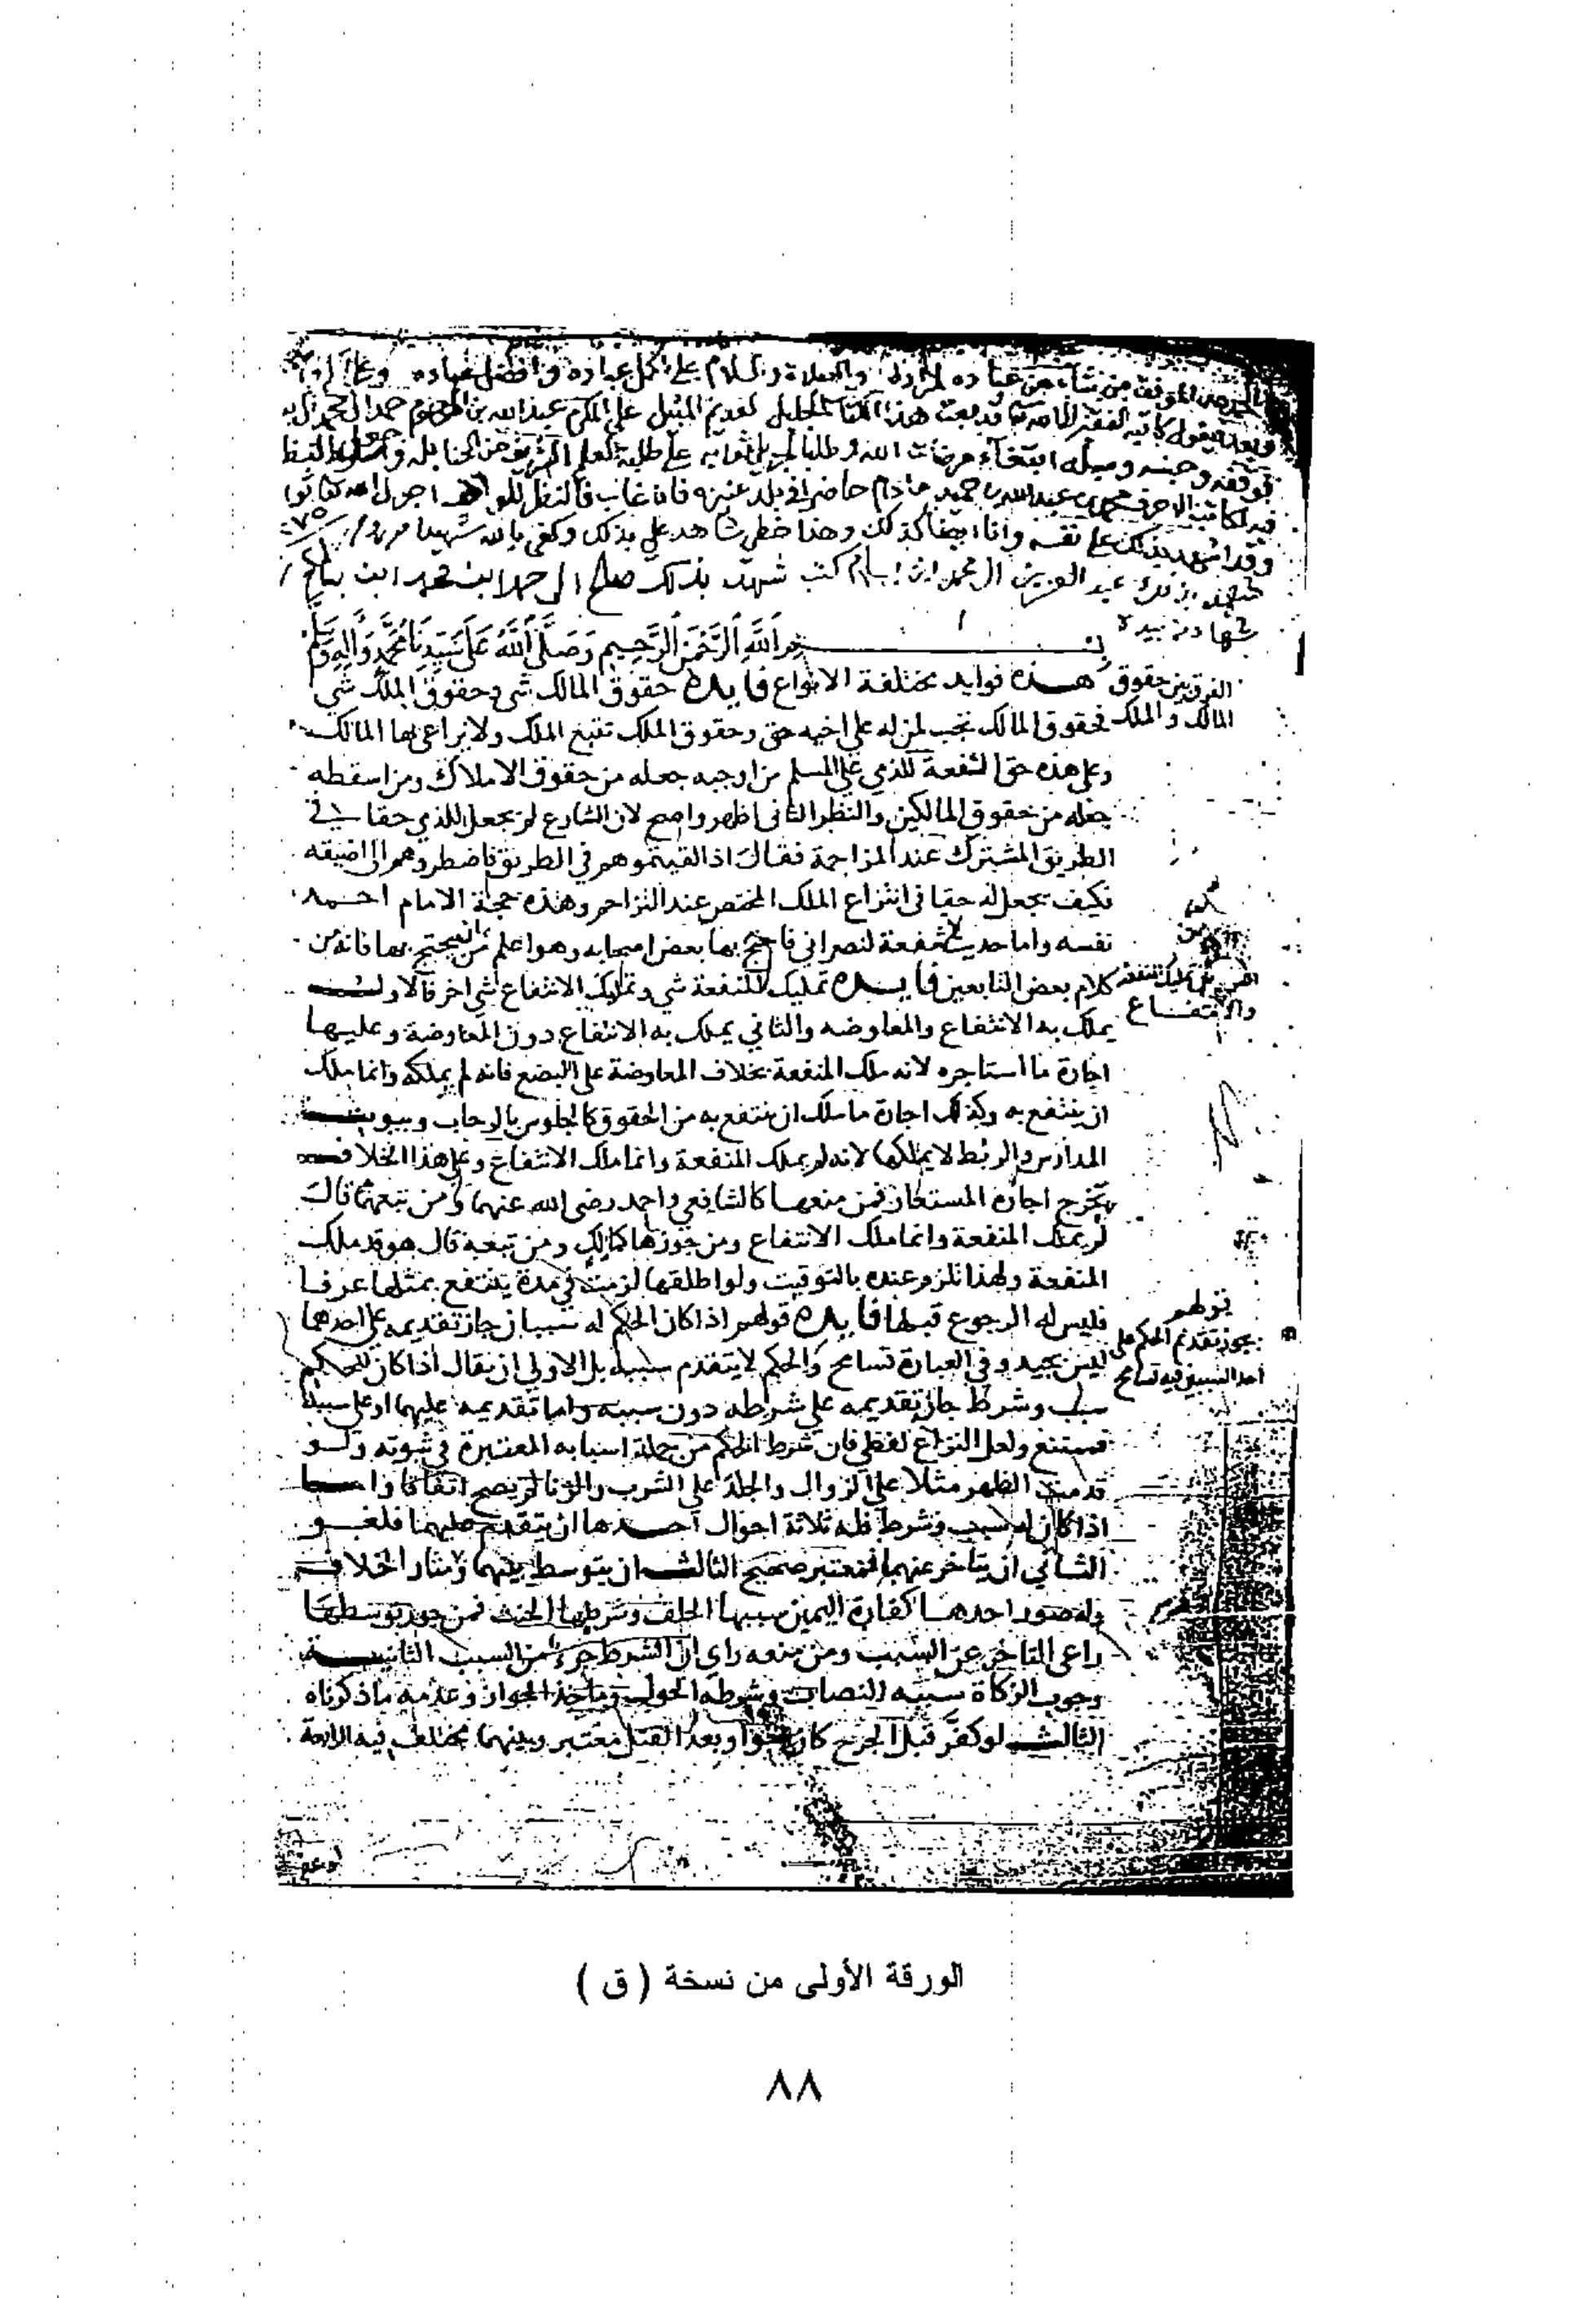 الحمد لله الموفق من يشاء من عباده والصلاة والسلام على اكمل عباده وافضل عباده وعلى
وبعد فيقول كاتبه الفقير قد بعت هذا الكتاب الجليل المكرم عبدالله بن المرحوم حمد
فوقفه وحبسه وسبله ابتغاء مرضات الله وطلبا لجزيل ثوابه على طلبة العلم الشريف من الحنابلة النظر
فيه لكاتبه الاحرف محمد بن عبدالله بن حميد مادام حاضرا في بلد عنيزه فان غاب فالنظر
وقد اشهد بذلك على نفسه وانا ايضا كذلك وهذا خطي شاهد علي بذلك وكفى بالله شهيدا
شهد بذلك عبد العزيز ال محمد كتب شهد بذلك صالح ابن محمد ابن
شهادته بيده
بسم الله الرحمن الرحيم وصلى الله على سيدنا محمد واله وسلم
الفرق بين حقوق
المالك والملك
هذه فوايد مختلفة الانواع فايده حقوق المالك شي وحقوق الملك شي
فحقوق المالك تجب لمن له على اخيه حق وحقوق الملك تتبع الملك ولا يراعى بها المالك
وعلى هذه حق الشفعة للذمي على المسلم من اوجبه جعله من حقوق الاملاك ومن اسقطه
جعله من حقوق المالكين والنظر الثاني اظهر واصح لان الشارع لم يجعل للذمي حقا في
الطريق المشترك عند المزاحمة فقال اذا لقيتموهم في الطريق فاضطروهم الى اضيقه
فكيف يجعل له حقا في انتزاع الملك المختص عند التزاحم وهذه حجة الامام احمد
نفسه واما حديث لا شفعة لنصراني فاحتج بها بعض اصحابه وهو اعلم من ان يحتج بها فانه من
كلام بعض التابعين فايده تمليك المنفعة شي وتمليك الانتفاع شي اخر فالاول
تمليك المنفعة
والانتفاع
يملك به الانتفاع والمعاوضه والثاني يملك به الانتفاع دون المعاوضة وعليها
اجارة ما استاجره لانه ملك المنفعة بخلاف المعاوضة على البضع فانه لم يملكه وانما ملك
ان ينتفع به وكذلك اجارة ما ملك ان ينتفع به من الحقوق كالجلوس بالرحاب وبيوت
المدارس والربط لا يملكها لانه لم يملك المنفعة وانما ملك الانتفاع وعلى هذا الخلاف
تخرج اجارة المستعار فمن منعها كالشافعي واحمد رضي الله عنهما ومن تبعهما قال
لم يملك المنفعة وانما ملك الانتفاع ومن جوزها كمالك ومن تبعه قال هو قد ملك
المنفعة ولهذا تلزم عنده بالتوقيت ولو اطلقها لزمت في مدة ينتفع بمثلها عرفا
فليس له الرجوع قبلها فايده قولهم اذا كان الحكم له سببان جاز تقديمه على احدهما
قولهم
يجوز تقديم الحكم على
احد السببين فيه تسامح
ليس بجيد وفي العبارة تسامح والحكم لا يتقدم سببه بل الاولى ان يقال اذا كان للحكم
سبب وشرط جاز تقديمه على شرطه دون سببه واما تقديمه عليهما او على سببه
فممتنع ولعل النزاع لفظي فان شرط الحكم من جملة اسبابه المعتبرة في ثبوته ولو
قدمت الظهر مثلا على الزوال والجلد على الشرب والزنا لم يصح اتفاقا واما
اذا كان له سبب وشرط فله ثلاثة احوال احدها ان يتقدم عليهما فلغو
الثاني ان يتاخر عنهما فمعتبر صحيح الثالث ان يتوسط بينهما ومثار الخلاف
وله صور احدها كفارة اليمين سببها الحلف وشرطها الحنث فمن جوز توسطها
راعى التاخر عن السبب ومن منعه راى ان الشرط جزء من السبب الثانية
وجوب الزكاة سببه النصاب وشرطه الحول وماخذ الجواز وعدمه ما ذكرناه
الثالث لو كفر قبل الجرح كان لغوا وبعد القتل معتبر وبينهما مختلف فيه الرابعة
لو عفى
الورقة الأولى من نسخة ( ق )
٨٨